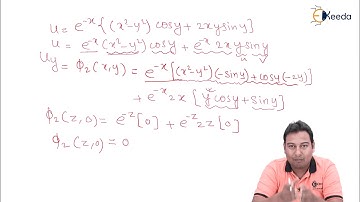 u = e^{-x} { (x²-y²) cosy + 2xy siny }
u = e^{-x} (x²-y²) cosy + e^{-x} 2xy siny
u v
Uy = ϕ₂(x,y) = e^{-x} [(x²-y²)(-siny) + cosy(-2y)]
+ e^{-x} 2x [y cosy + siny]
ϕ₂(z,0) = e^{-z} [0] + e^{-z} 2z [0]
ϕ₂(z,0) = 0
Ekeeda